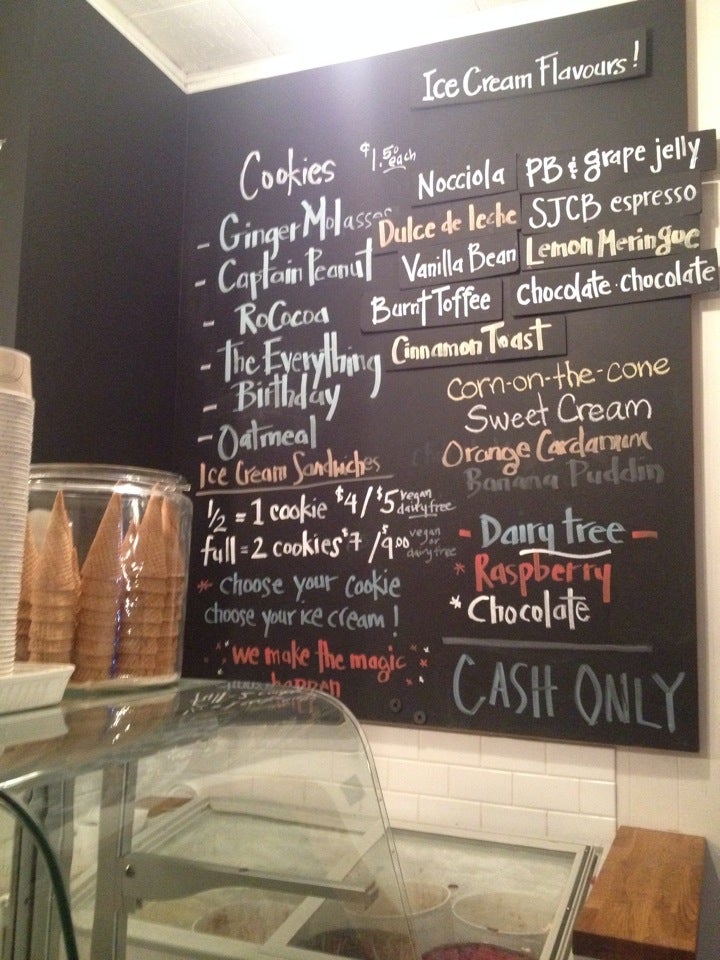 Ice Cream Flavours!
Cookies $1.50 each
- Ginger Molasses
- Captain Peanut
- RoCocoa
- The Everything
- Birthday
- Oatmeal
Ice Cream Sandwiches
1/2 = 1 cookie $4/$5 vegan dairy free
full = 2 cookies $7/$9.00 vegan or dairy free
* choose your cookie
choose your ice cream!
we make the magic
happen
Nocciola
PB & grape jelly
Dulce de leche
SJCB espresso
Vanilla Bean
Lemon Meringue
Burnt Toffee
Chocolate · chocolate
Cinnamon Toast
Corn-on-the-cone
Sweet Cream
Orange Cardamum
Banana Puddin
- Dairy free -
* Raspberry
* Chocolate
CASH ONLY